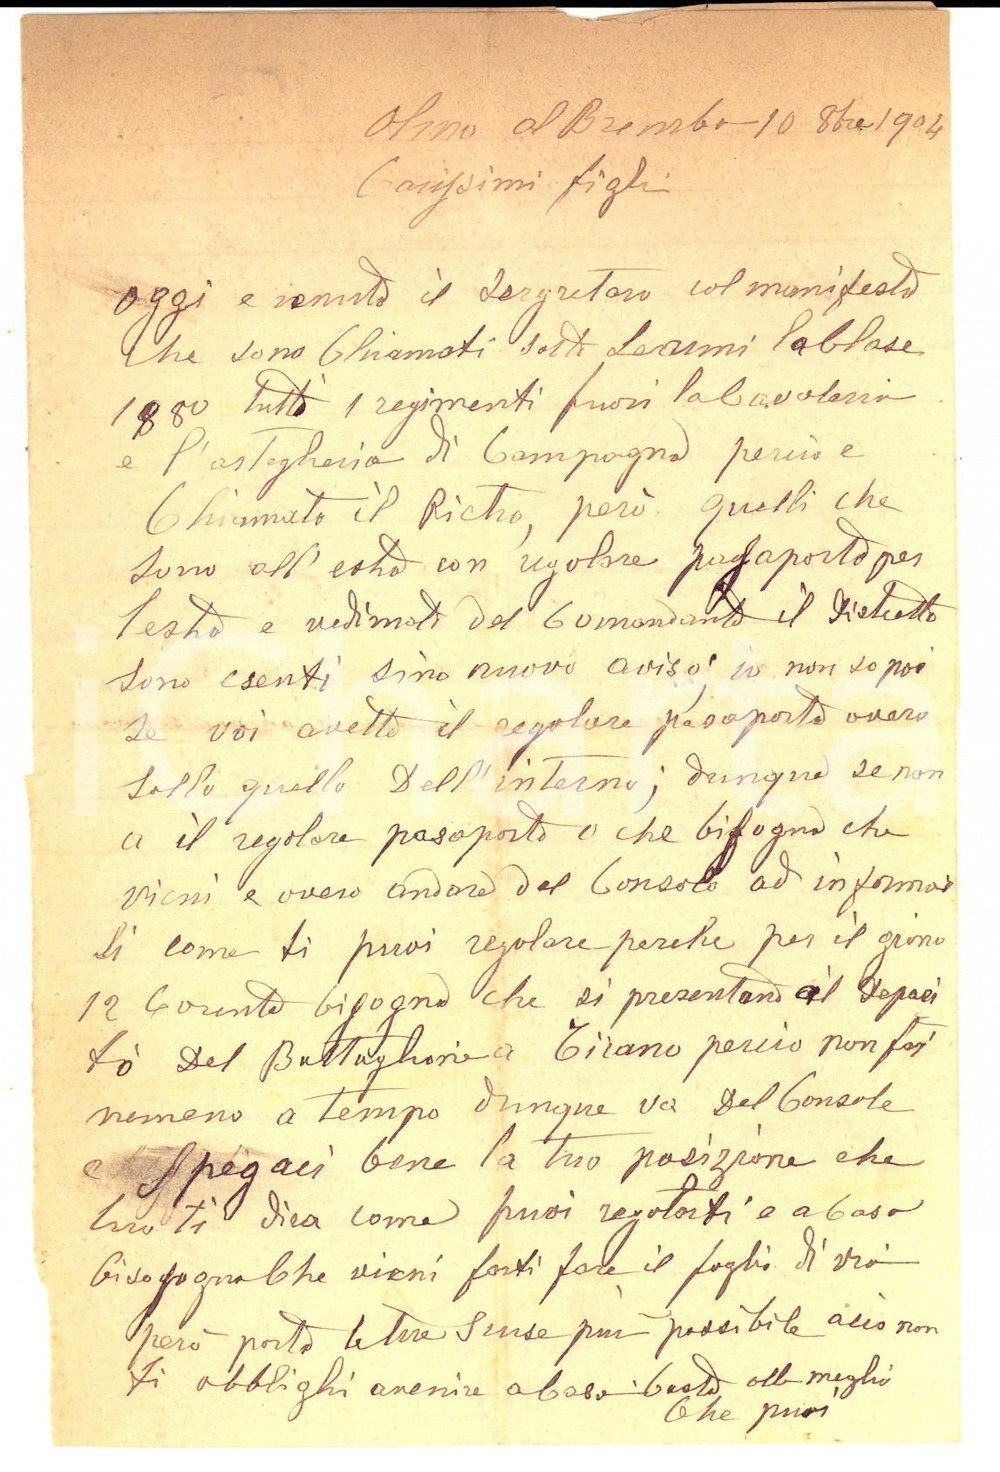 Olmo al Brembo 10 8bre 1904
Carissimi figli
oggi e venuto il Sergretaro col manifesto
che sono Chiamati sotto Learmi laClase
1880 tutti i regimenti fuori laCavaleria
e l'artegheria di Campagna perciò e
Chiamato il Pietro, però quelli che
sono all'estro con regolare passaporto per
lestro e vedimato del Comandanto il Distretto
sono esenti sino nuovo aviso; io non so poi
se voi avette il regolare pasaporto overo
sollo quello Dell'interno; dunque se non
a il regolare pasaporto o che bisogna che
vieni e overo andare del Consolo ad informar
ti come ti puoi regolare perche per il giorno
12 Corento bisogna che si presentano al Deposi
tò Del Battaglione a Tirano perciò non fai
nemeno a tempo dunque va Del Console
e Spegaci bene la tuo posizione che
luo ti dira come puoi regolarti e a Casa
bisogogna Che vieni farti fare il foglio di via
però porta le tue Scuse più possibile acio non
ti obblighi avenire a Casa basta alla meglio
Che puoi